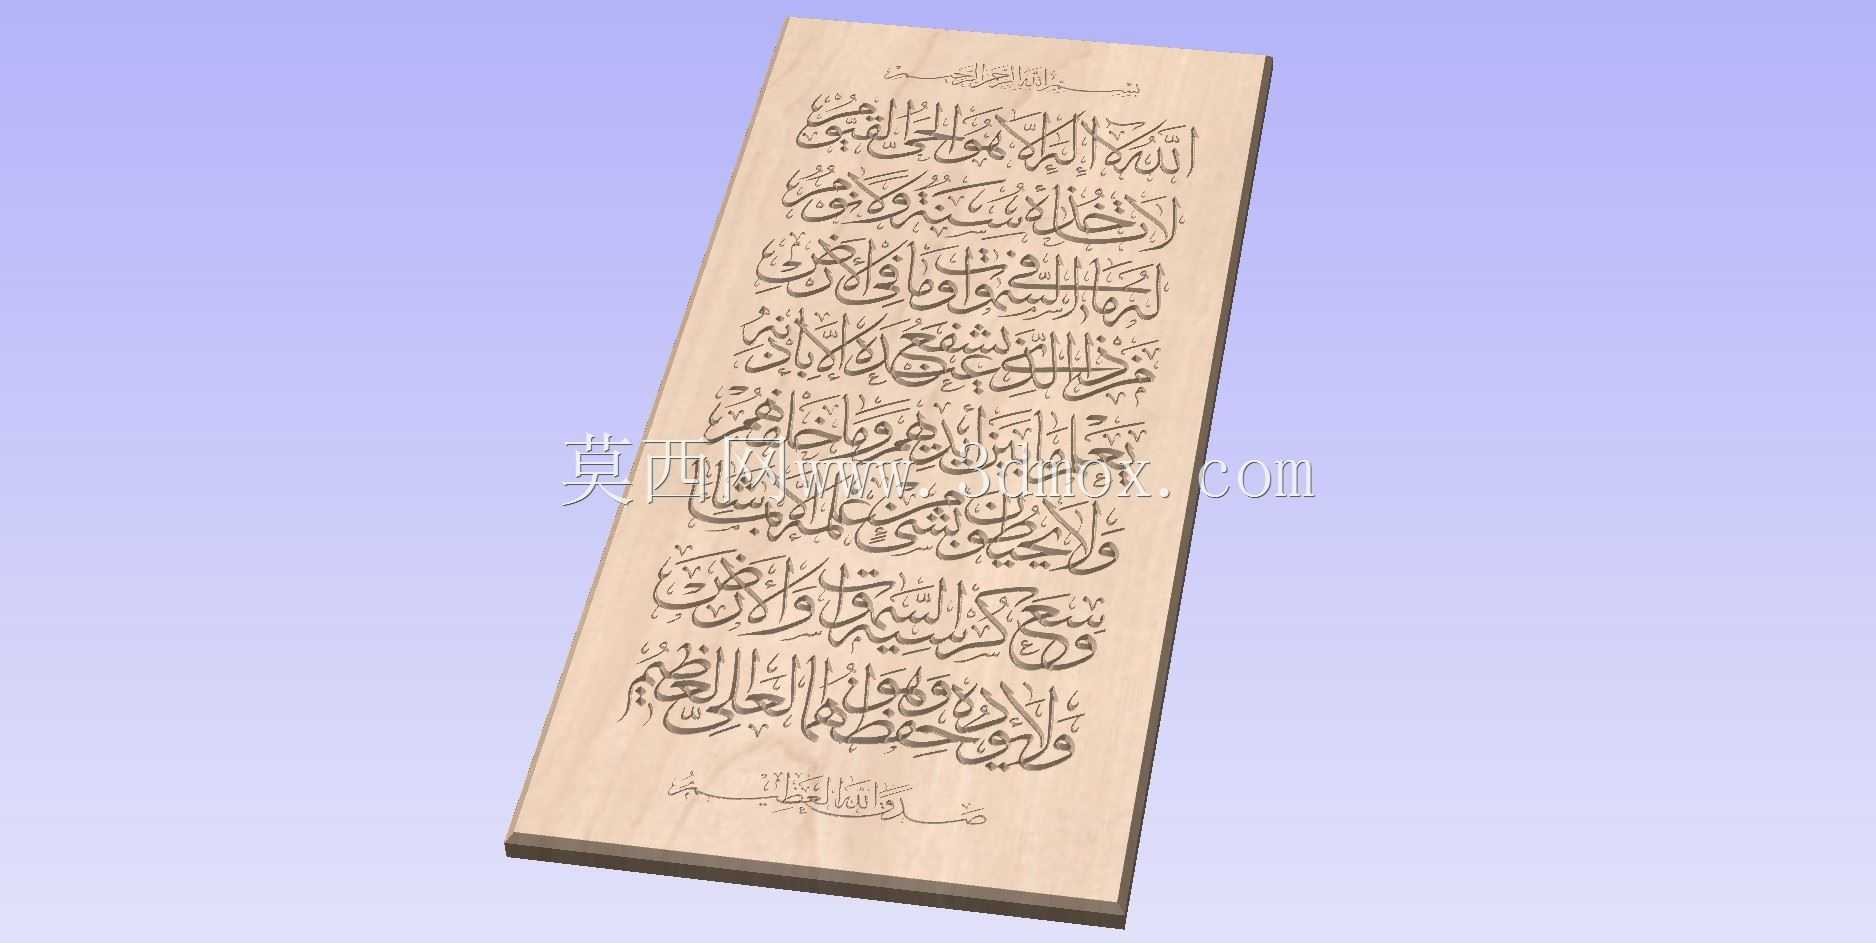 بسم الله الرحمن الرحيم
الله لا إله إلا هو الحي القيوم
لا تأخذه سنة ولا نوم
له ما في السموات وما في الأرض
من ذا الذي يشفع عنده إلا بإذنه
يعلم ما بين أيديهم وما خلفهم
莫西网www.3dmox.com
ولا يحيطون بشيء من علمه إلا بما شاء
وسع كرسيه السموات والأرض
ولا يؤده حفظهما وهو العلي العظيم
صدق الله العظيم